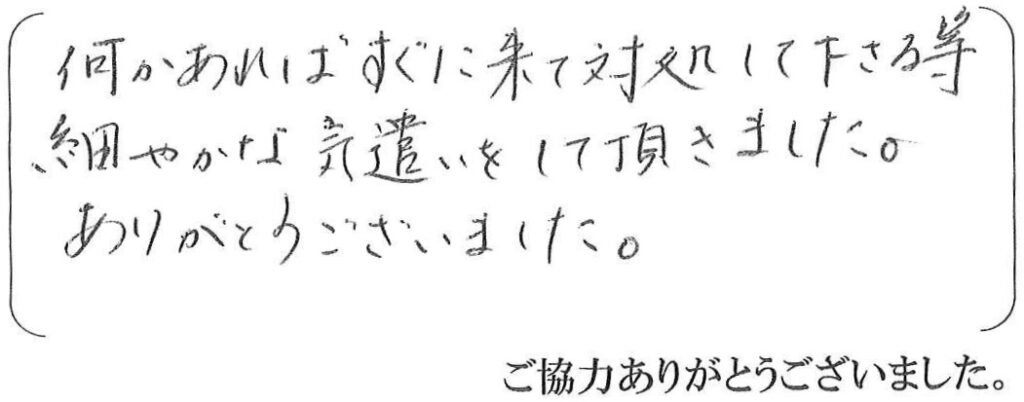 何かあればすぐに来て対処して下さる等
細やかな気遣いをして頂きました。
ありがとうございました。
ご協力ありがとうございました。